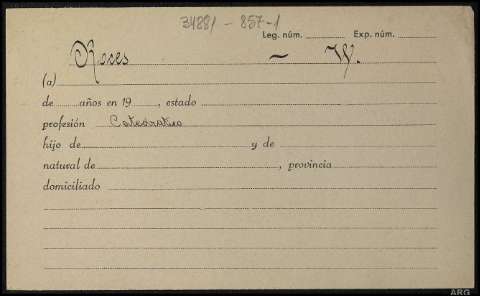 34881 - 857-1
Leg. núm. Exp. núm.
Roces - W.
(a)
de años en 19, estado
profesión Catedratico
hijo de y de
natural de, provincia
domiciliado
ARG